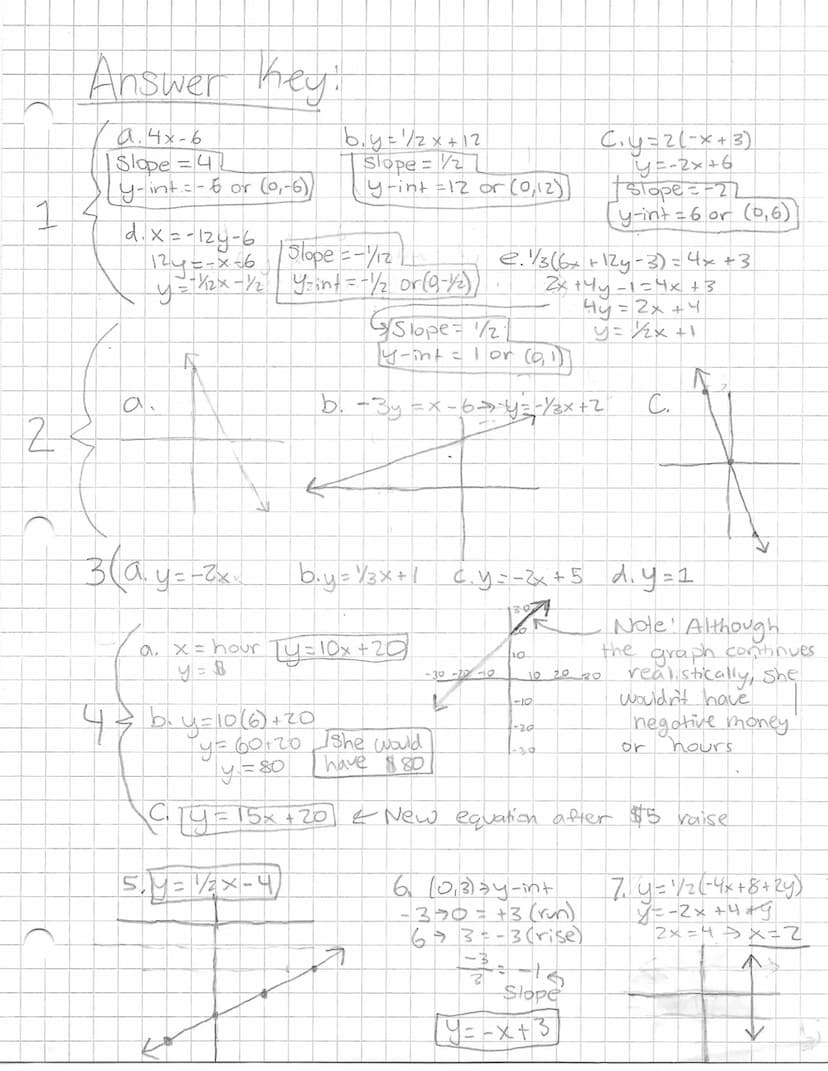 Answer Key:
1
a. 4x-6
Slope = 4
y-int = -6 or (0,-6)
b. y = 1/2 x + 12
Slope = 1/2
y-int = 12 or (0,12)
c. y = 2(-x + 3)
y = -2x + 6
Slope = -2
y-int = 6 or (0,6)
d. x = -12y - 6
12y = -x - 6
y = -1/12x - 1/2
Slope = -1/12
y-int = -1/2 or (0,-1/2)
e. 1/3(6x + 12y - 3) = 4x + 3
2x + 4y - 1 = 4x + 3
4y = 2x + 4
y = 1/2x + 1
Slope = 1/2
y-int = 1 or (0,1)
2
a.
b. -3y = x - 6 → y = -1/3x + 2
c.
3 a. y = -2x
b. y = 1/3x + 1
c. y = -2x + 5
d. y = 1
4
a. x = hour
y = $
y = 10x + 20
30
20
10
-30 -20 -10
10 20 30
-10
-20
-30
Note! Although
the graph continues
realistically, she
wouldn't have
negative money
or hours
b. y = 10(6) + 20
y = 60 + 20
y = 80
She would
have $80
C. y = 15x + 20 ← New equation after $5 raise
5. y = 1/2x - 4
6. (0,3) → y-int
-3 → 0 = +3 (run)
6 → 3 = -3 (rise)
-3/3 = -1
Slope
y = -x + 3
7. y = 1/2(-4x + 8 + 2y)
y = -2x + 4 + y
2x = 4 → x = 2